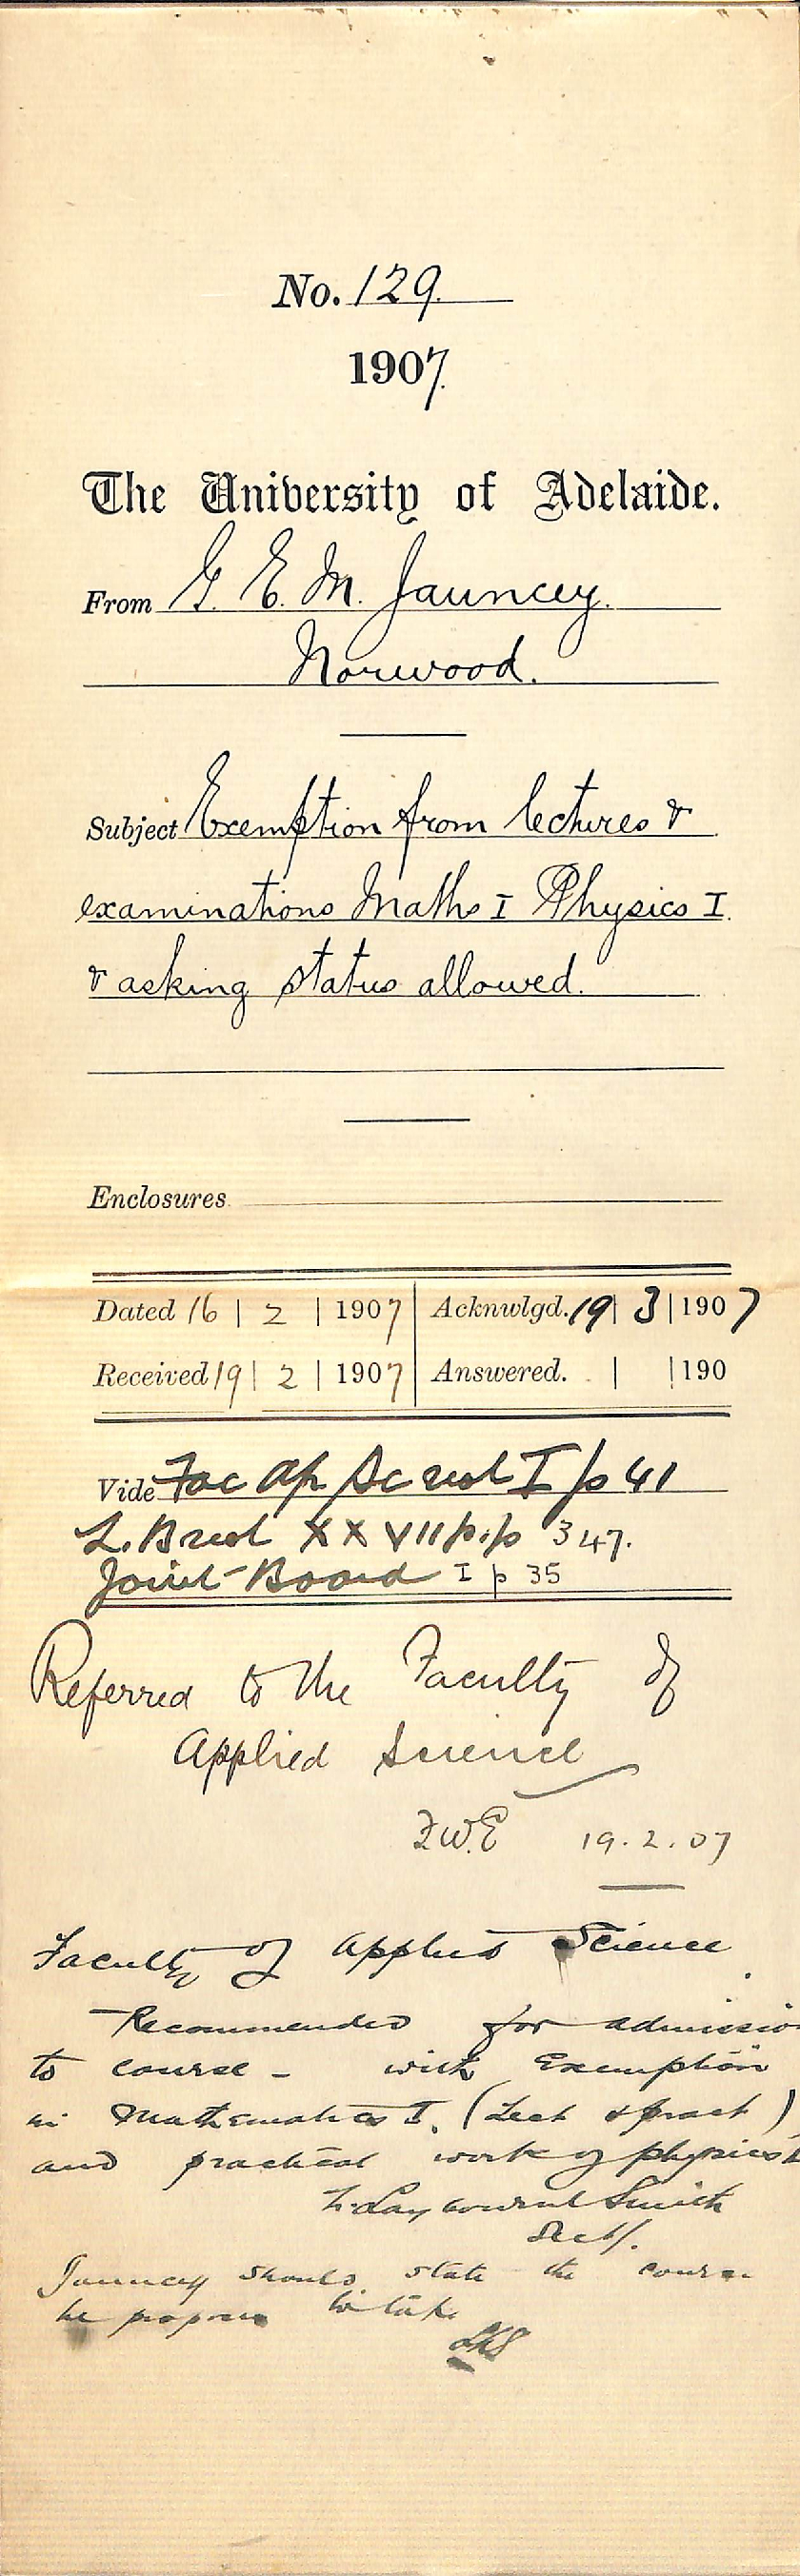 No. 129.
1907.
The University of Adelaide.
From G. E. M. Jauncey.
Norwood.
Subject Exemption from lectures &
examinations Maths I Physics I.
& asking status allowed.
Enclosures
Dated 16 | 2 | 1907 | Acknwlgd. 19 | 3 | 1907
Received 19 | 2 | 1907 | Answered. | | 190
Vide Fac Ap Sc I p 41
XXVII p.p 347.
Joint Board I p 35
Referred to the Faculty of
Applied Science
F.W.E 19.2.07
Faculty of Applied Science
Recommended for admissio
to course - with Exemption
in Mathematics I. (Lect & pract)
and practical work of physics I
Smith
Jauncey should state the course
he proposes to take